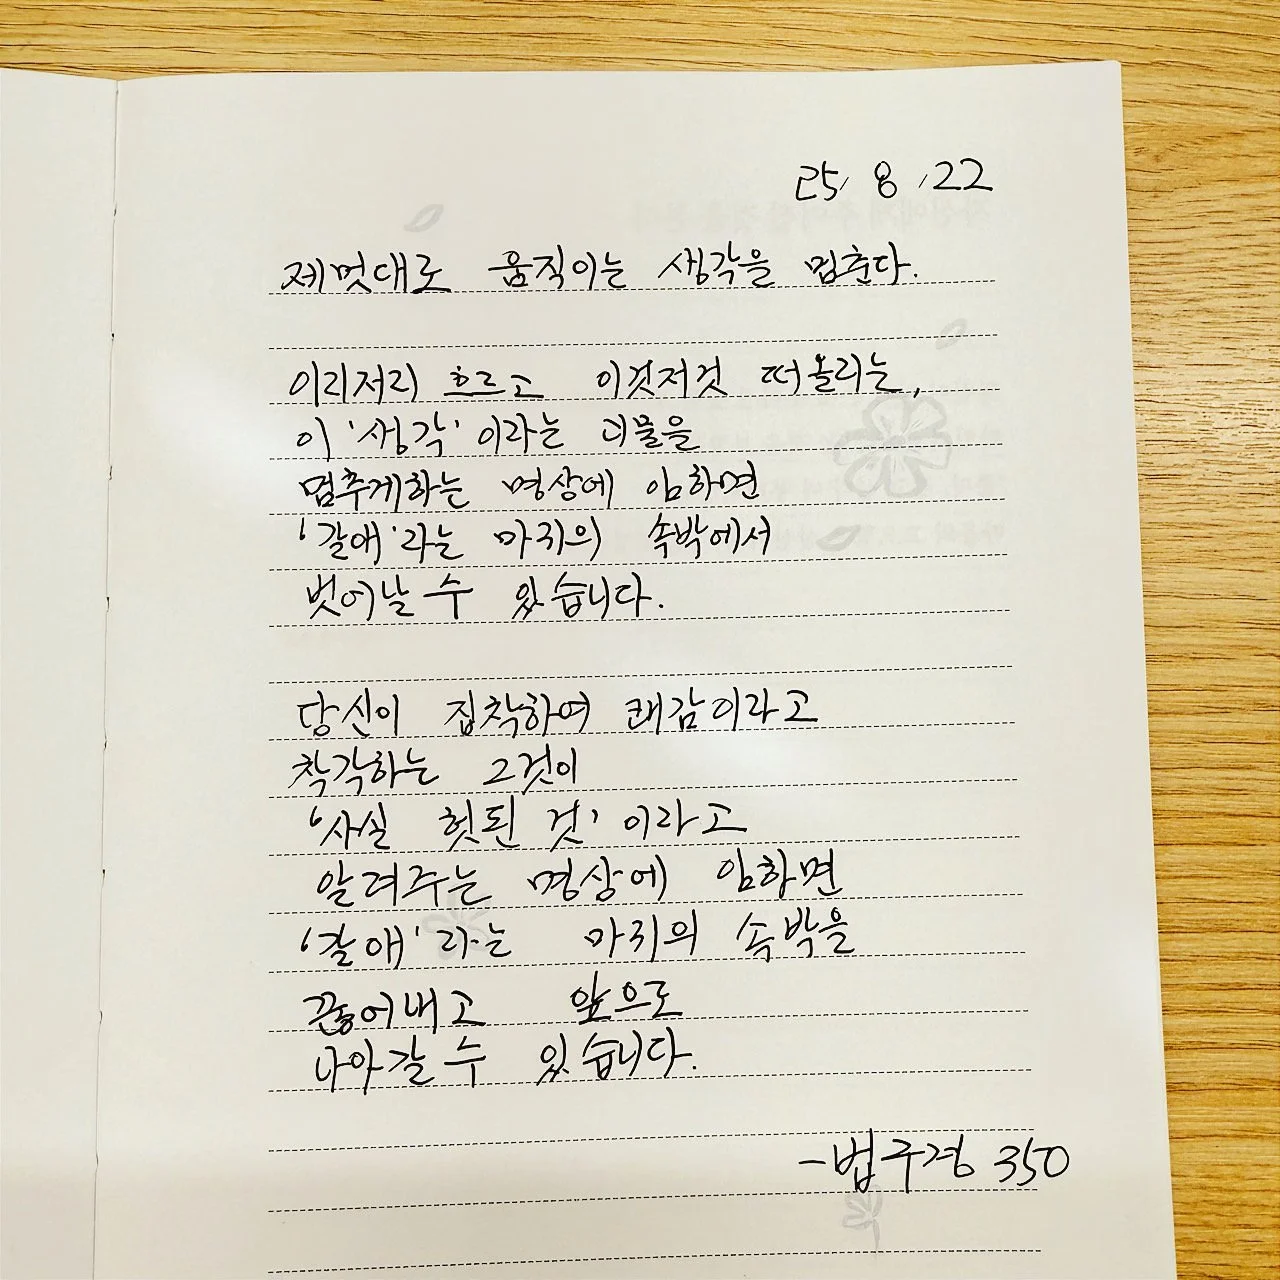 25. 8. 22
제멋대로 움직이는 생각을 멈춘다.
이리저리 흐르고 이것저것 떠올리는,
이 '생각' 이라는 괴물을
멈추게하는 명상에 임하면
'갈애'라는 마귀의 속박에서
벗어날 수 있습니다.
당신이 집착하여 쾌감이라고
착각하는 그것이
'사실 헛된 것' 이라고
알려주는 명상에 임하면
'갈애'라는 마귀의 속박을
끊어내고 앞으로
나아갈 수 있습니다.
-법구경 350